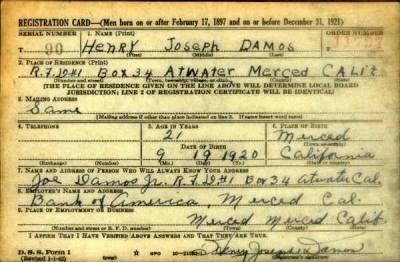 REGISTRATION CARD—(Men born on or after February 17, 1897 and on or before December 31, 1921)
SERIAL NUMBER 1. NAME (Print) ORDER NUMBER
T 90 HENRY JOSEPH DAMOS
(First) (Middle) (Last)
2. PLACE OF RESIDENCE (Print)
R.F.D#1 Box 34 Atwater Merced CALIF.
(Number and street) (Town, township, village, or city) (County) (State)
[THE PLACE OF RESIDENCE GIVEN ON THE LINE ABOVE WILL DETERMINE LOCAL BOARD
JURISDICTION; LINE 2 OF REGISTRATION CERTIFICATE WILL BE IDENTICAL]
3. MAILING ADDRESS
Same
[Mailing address if other than place indicated on line 2. If same insert word same]
4. TELEPHONE 5. AGE IN YEARS 6. PLACE OF BIRTH
21 Merced
DATE OF BIRTH (Town or county)
9 19 1920 California
(Exchange) (Number) (Mo.) (Day) (Yr.) (State or country)
7. NAME AND ADDRESS OF PERSON WHO WILL ALWAYS KNOW YOUR ADDRESS
Joe Damos Jr. R.F.D#1 Box 34 Atwater Cal.
8. EMPLOYER'S NAME AND ADDRESS
Bank of America, Merced Cal.
9. PLACE OF EMPLOYMENT OR BUSINESS
Merced Merced Calif.
(Number and street or R. F. D. number) (Town) (County) (State)
I AFFIRM THAT I HAVE VERIFIED ABOVE ANSWERS AND THAT THEY ARE TRUE.
D. S. S. Form 1 GPO Henry Joseph Damos
(Revised 1-1-42)